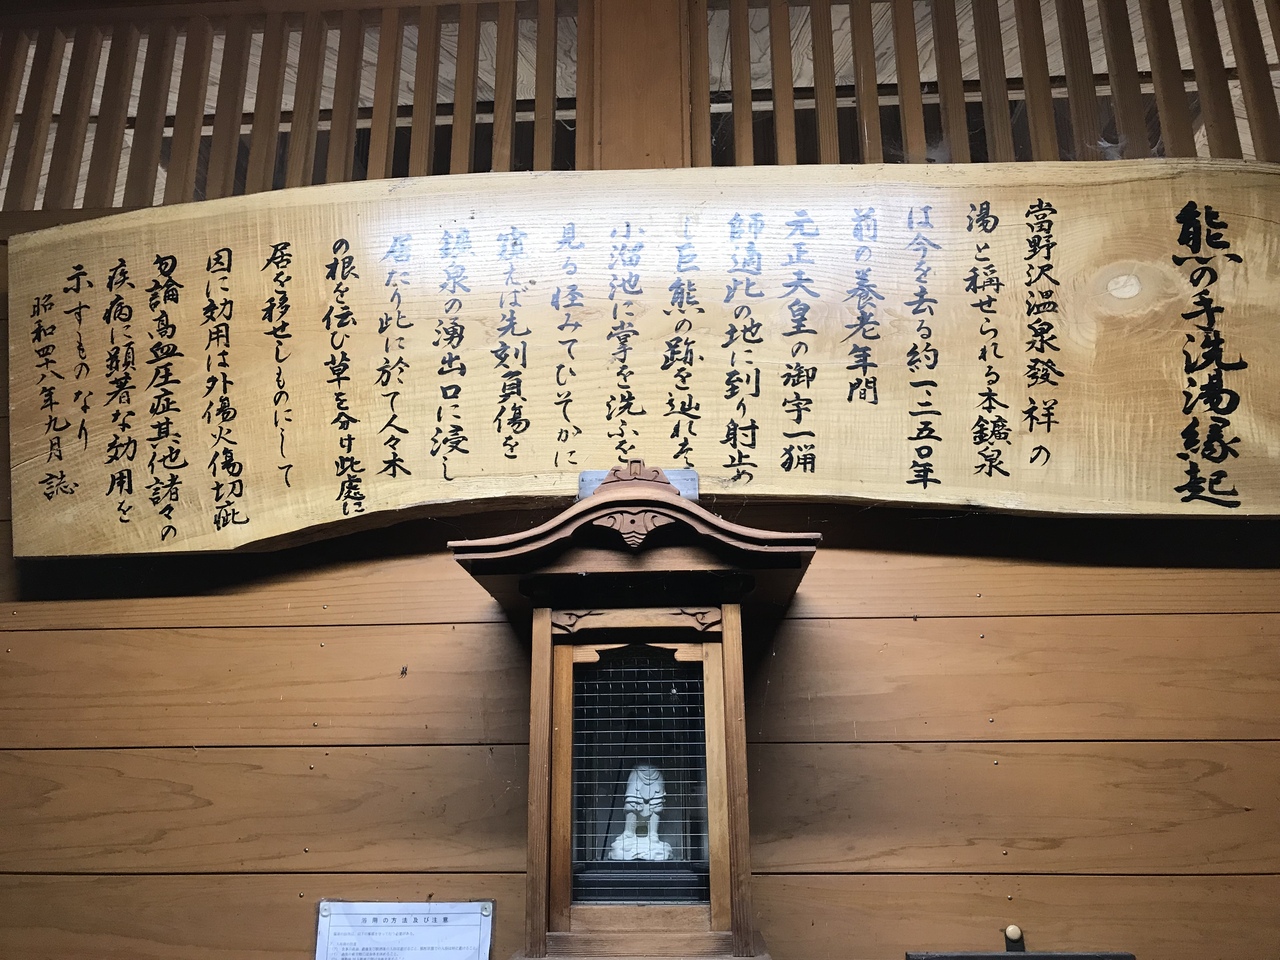 熊の手洗湯縁起
當野沢温泉發祥の
湯と稱せられる本鑛泉
は今を去る約一、二五〇年
前の養老年間
元正天皇の御宇一猟
師適此の地に到り射止め
し巨熊の跡を辿れば
小溜池に掌を洗ふを
見る怪みてひそかに
窺えば先刻負傷を
鑛泉の湧出口に浸し
居たり此に於て人々木
の根を伝ひ草を分け此處に
居を移せしものにして
因に効用は外傷火傷切疵
勿論高血圧症其他諸々の
疾病に顕著な効用を
示すものなり
昭和四十八年九月 誌
浴用の方法及び注意